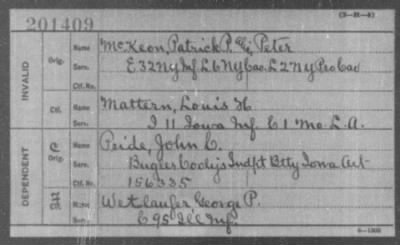 (3—21—4)
201409
INVALID
Orig.
Name McKeon, Patrick P. Gi, Peter
Serv. E 32 Ny Inf L 6 Ny Cav. L 2 Ny Pro Cav
Ctf. No.
Ctf.
Name Mattern, Louis H
Serv. I 11 Iowa Inf C 1 Mo. L. A.
DEPENDENT
C
Orig.
Name Peide, John L.
Serv. Bugler Bodys Indpt Btty Iowa Art
Ctf. No. 156335
Name Wetzlaufer George P.
Serv. C 95 Ill Inf.